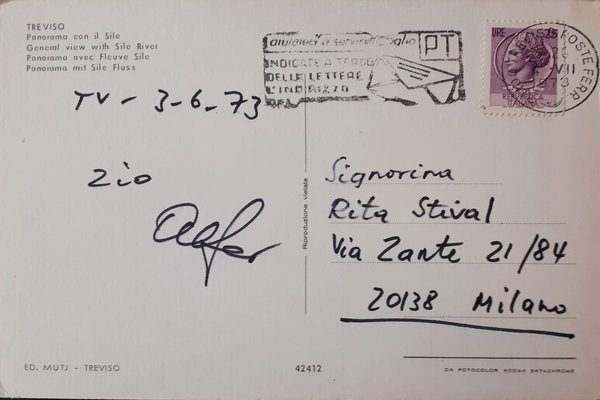 TREVISO
Panorama con il Sile
General view with Sile River
Panorama avec Fleuve Sile
Panorama mit Sile Fluss
TV - 3-6-73
zio
aiutateci a servirvi meglio
PT
INDICATE A TERGO
DELLE LETTERE
L'INDIRIZZO
DEL
LIRE 25
REPUBBLICA
ITALIANA
POSTE FERR
VII
Signorina
Rita Stival
Via Zante 21/84
20138 Milano
Riproduzione vietata
ED. MUTJ - TREVISO
42412
DA FOTOCOLOR KODAK EKTACHROME